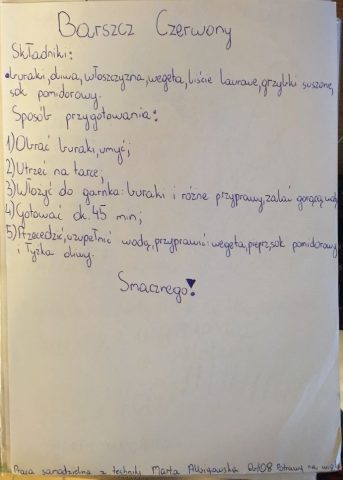 Barszcz Czerwony
Składniki:
•buraki, oliwa, włoszczyzna, wegeta, liście laurowe, grzybki suszone,
sok pomidorowy.
Sposób przygotowania:
1) Obrać buraki, umyć;
2) Utrzeć na tarce;
3) Włożyć do garnka: buraki i różne przyprawy, zalać gorącą wodą
4) Gotować ok. 45 min;
5) Przecedzić, uzupełnić wodą, przyprawić: wegeta, pieprz, sok pomidorowy
i łyżka oliwy.
Smacznego!
Praca samodzielna z techniki Marta Potrawy na